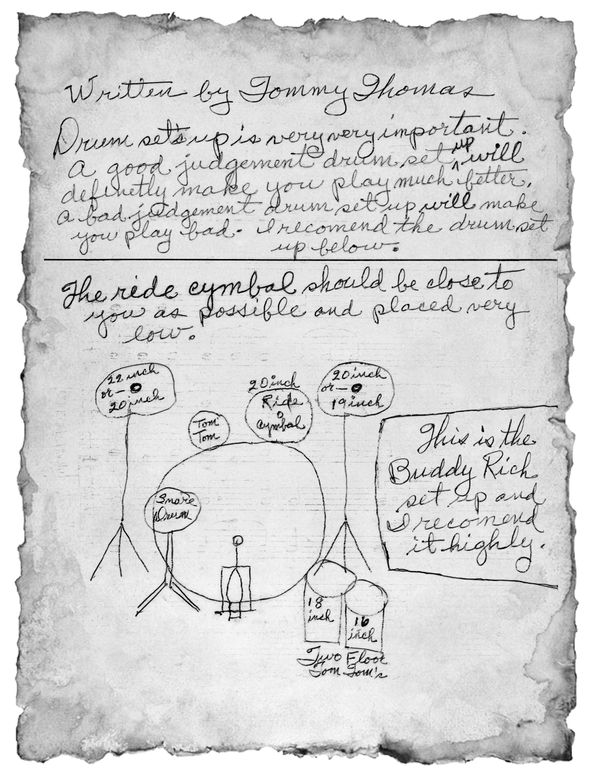 Written by Tommy Thomas
Drum sets up is very very important.
A good judgement drum set up will
definetly make you play much better.
A bad judgement drum set up will make
you play bad. I recomend the drum set
up below.
The ride cymbal should be close to
you as possible and placed very
low.
22 inch
or—
20 inch
Tom
Tom
20 inch
Ride
Cymbal
20 inch
or—
19 inch
This is the
Buddy Rich
set up and
I recomend
it highly.
Snare
Drum
18
inch
16
inch
Two Floor
Tom Tom's